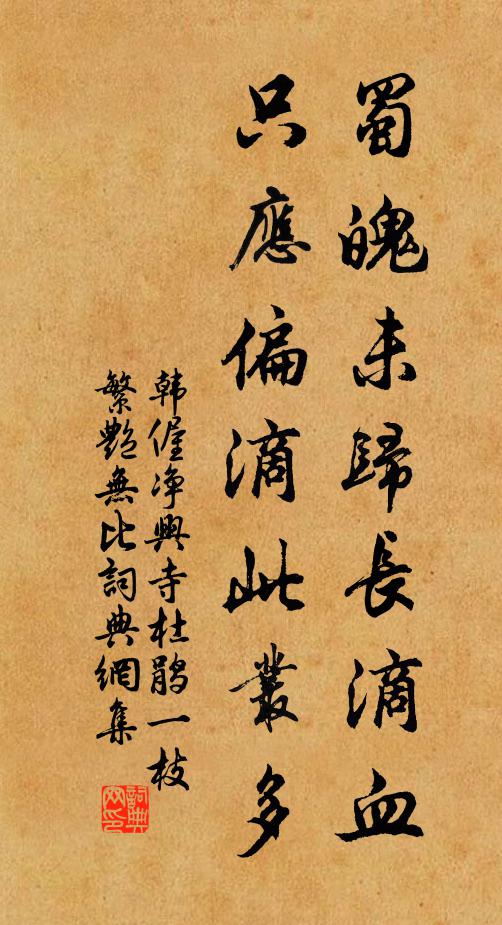 蜀魄未歸長滴血
只應偏滴此叢多
韩偓净興寺杜鹃一枝
繁艷無比詞典網集
詞典網印